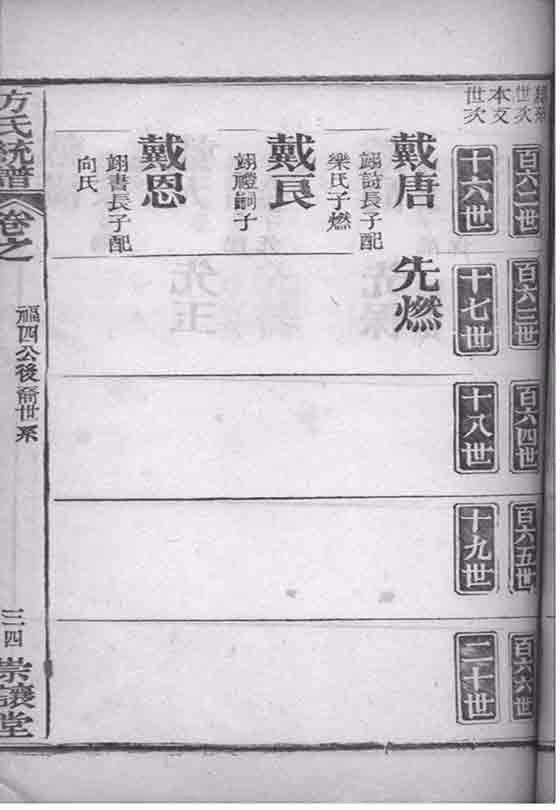 世次
本支
世次
百六二世
百六三世
百六四世
百六五世
百六六世
十六世
十七世
十八世
十九世
二十世
戴唐
翊詩長子配
樂氏子燃
先燃
戴良
翊禮嗣子
戴恩
翊書長子配
向氏
方氏統譜
卷之
福四公後裔世系
三四
崇讓堂